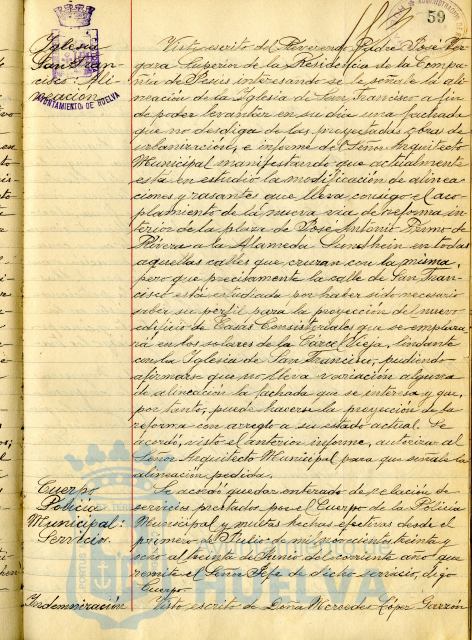 59
AYUNTAMIENTO DE HUELVA
Iglesia
San Fran-
cisco: Ali-
neación
Visto escrito del Reverendo Padre José Ver
gara Superior de la Residencia de la Compa-
ñía de Jesús interesando se le señale la ali-
neación de la Iglesia de San Francisco a fin
de poder levantar en su día una fachada
que no desdiga de las proyectadas obras de
urbanización, e informe del Señor Arquitecto
Municipal manifestando que actualmente
está en estudio la modificación de alinea-
ciones y rasante que lleva consigo el aco-
plamiento de la nueva vía de reforma in-
terior de la plaza de José Antonio Primo de
Rivera a la Alameda Sundheim en todas
aquellas calles que cruzan con la misma,
pero que precisamente la calle de San Fran-
cisco está estudiada por haber sido necesario
saber su perfil para la proyección del nuevo
edificio de Casas Consistoriales que se emplaza-
rá en los solares de la Cárcel Vieja, lindante
con la Iglesia de San Francisco, pudiendo
afirmarse que no lleva variación alguna
de alineación la fachada que se interesa y que,
por tanto, puede hacerse la proyección de la
reforma con arreglo a su estado actual. Se
acordó, visto el anterior informe, autorizar al
Señor Arquitecto Municipal para que señale la
alineación pedida.
Cuerpo
Policía
Municipal:
Servicio.
Se acordó quedar enterado de relación de
servicios prestados por el Cuerpo de la Policía
Municipal y multas hechas efectivas desde el
primero de
al treinta de Junio del corriente año que
remite el Señor Jefe de dicho servicio, digo
Cuerpo.
Indemnización
Visto escrito de Doña Mercedes López Garzón
HUELVA